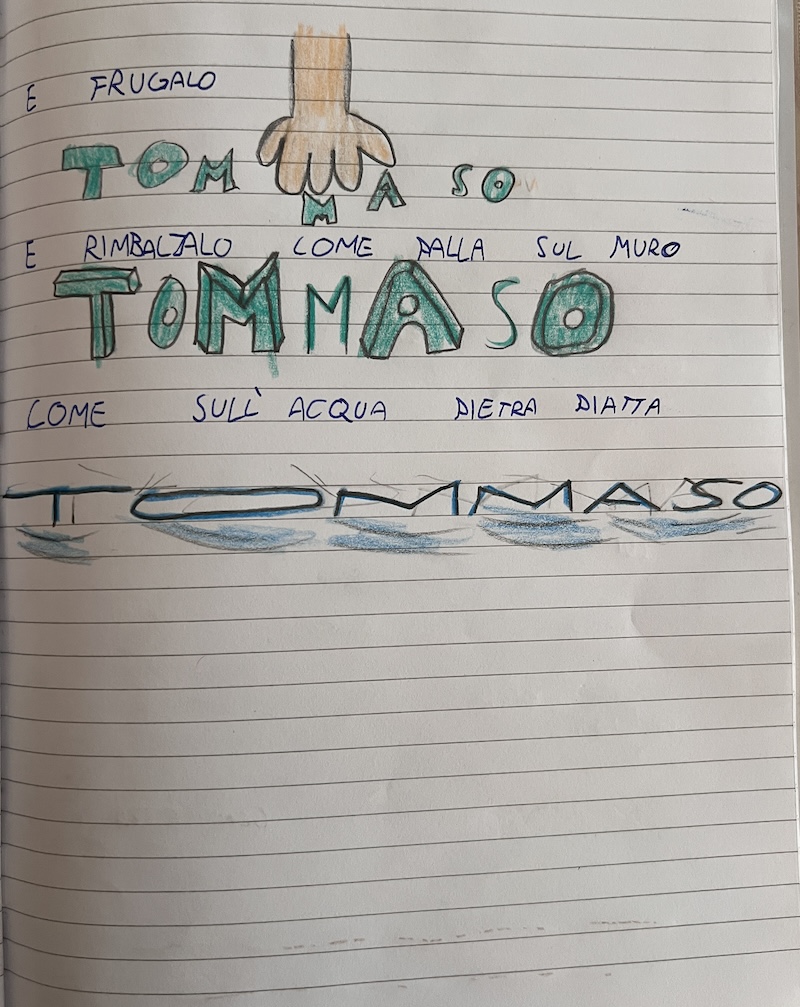 E FRUGALO
TOMMASO
E RIMBALZALO COME PALLA SUL MURO
TOMMASO
COME SULL' ACQUA PIETRA PIATTA
TOMMASO